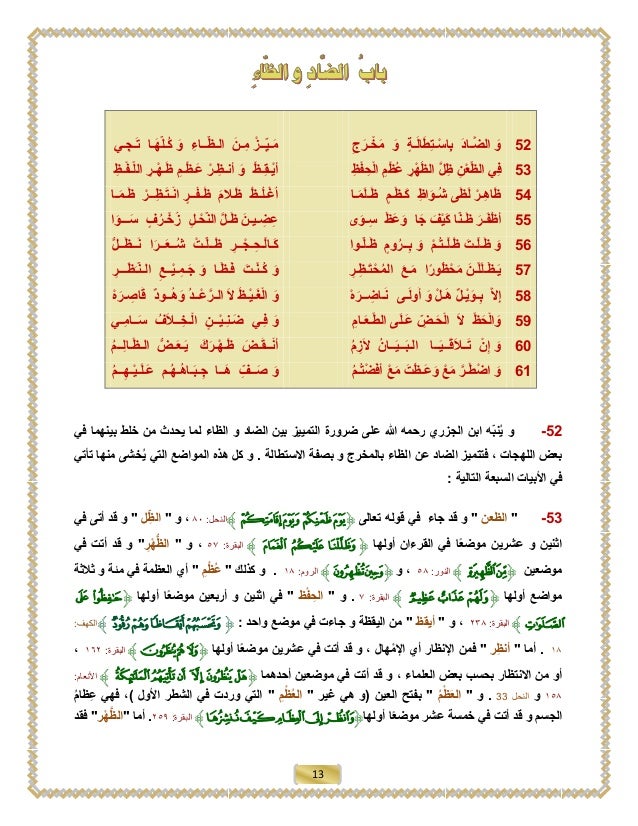 بابُ الضَّادِ و الظَّاءِ
52 وَ الضَّـادَ بِاسْـتِطَالَـةٍ وَ مَـخْـرَجِ مَـيِّـزْ مِـنَ الـظَّـاءِ وَ كُـلُّـهَـا تَـجِـي
53 فِي الظَّعْنِ ظِلُّ الظُّهْرِ عُظْمُ الْحِفْظِ أَيْـقِـظْ وَ أَنـظِـرْ عَـظْـمَ ظَـهْـرِ الـلَّـفْـظِ
54 ظَاهِـرْ لَظَى شُـوَاظُ كَـظْـمٍ ظَـلَـمَـا أُغْـلُـظْ ظَـلاَمَ ظُـفُـرٍ انْـتَـظِـرْ ظَـمَـا
55 أَظْـفَـرَ ظَـنًّـا كَيْفَ جَا وَعَظْ سِـوَى عِـضِـيـنَ ظَـلَّ النَّحْـلِ زُخْـرُفٍ سَـوَا
56 وَ ظَـلْـتَ ظَـلْـتُـمْ وَ بِـرُومٍ ظَـلُّـوا كَـالْـحِـجْـرِ ظَـلَّـتْ شُـعَـرَا نَـظَـلُّ
57 يَـظْـلَـلْـنَ مَحْظُورًا مَـعَ الْمُحْـتَـظِـرِ وَ كُـنْـتَ فَـظًّـا وَ جَـمِـيْـعِ الـنَّـظَـرِ
58 إلاَّ بِـوَيْـلٌ هَـلْ وَ أُولَـى نَـاضِـرَهْ وَ الْـغَـيْـظُ لاَ الـرَّعْـدُ وَ هُـودٌ قَاصِرَهْ
59 وَالْحَظُّ لاَ الْـحَـضُّ عَـلَـى الطَّـعَـامِ وَ فِـي ضَـنِـيْـنٍ الْـخِـلاَفُ سَـامِـي
60 وَ إِنْ تَـلاَقَـيَـا الـبَـيَـانُ لاَزِمُ أَنْـقَـضَ ظَـهْـرَكَ يَـعَـضُّ الـظَّـالِـمُ
61 وَ اضْطُرَّ مَعْ وَعَـظْـتَ مَعْ أَفَضْتُـمُ وَ صَـفِّ هَـا جِـبَـاهُـهُـم عَـلَـيْـهِـمُ
52- و يُنَبّه ابن الجزري رحمه الله على ضرورة التمييز بين الضاد و الظاء لما يحدث من خلط بينهما في
بعض اللهجات ، فتتميز الضاد عن الظاء بالمخرج و بصفة الاستطالة . و كل هذه المواضع التي يُخشى منها تأتي
في الأبيات السبعة التالية :
53- " الظعن " و قد جاء في قوله تعالى ﴿ يَوْمَ ظَعْنِكُمْ وَيَوْمَ إِقَامَتِكُمْ ﴾ النحل: ٨٠ ، و " الظِّل " و قد أتى في
اثنين و عشرين موضعًا في القرءان أولها ﴿ وَظَلَّلْنَا عَلَيْكُمُ الْغَمَامَ ﴾ البقرة: ٥٧ ، و " الظُّهْرِ" و قد أتت في
موضعين ﴿ مِّنَ الظَّهِيرَةِ ﴾ النور: ٥٨ ، و ﴿ وَحِينَ تُظْهِرُونَ ﴾ الروم: ١٨ . و كذلك " عُظْمُ " أي العظمة في مئة و ثلاثة
مواضع أولها ﴿ وَلَهُمْ عَذَابٌ عَظِيمٌ ﴾ البقرة: ٧ . و " الحفْظ " في اثنين و أربعين موضعًا أولها ﴿ حَافِظُوا عَلَى
الصَّلَوَاتِ ﴾ البقرة: ٢٣٨ ، و " أيقظ " من اليقظة و جاءت في موضع واحد : ﴿ وَتَحْسَبُهُمْ أَيْقَاظًا وَهُمْ رُقُودٌ ﴾ الكهف:
١٨ . أما " أنظر " فمن الإنظار أي الإمْهال ، و قد أتت في عشرين موضعًا أولها ﴿ وَلَا هُمْ يُنظَرُونَ ﴾ البقرة: ١٦٢ ،
أو من الانتظار بحسب بعض العلماء ، و قد أتت في موضعين أحدهما ﴿ هَلْ يَنظُرُونَ إِلَّا أَن تَأْتِيَهُمُ الْمَلَائِكَةُ ﴾ الأنعام:
١٥٨ و النحل 33 . و " العَظْمُ " بفتح العين (و هي غير " العُظْمِ " التي وردت في الشطر الأول )، فهي عِظامُ
الجسم و قد أتت في خمسة عشر موضعًا أولها ﴿ وَانظُرْ إِلَى الْعِظَامِ كَيْفَ نُنشِزُهَا ﴾ البقرة: ٢٥٩. أما "الظَّهْرِ" فقد
13